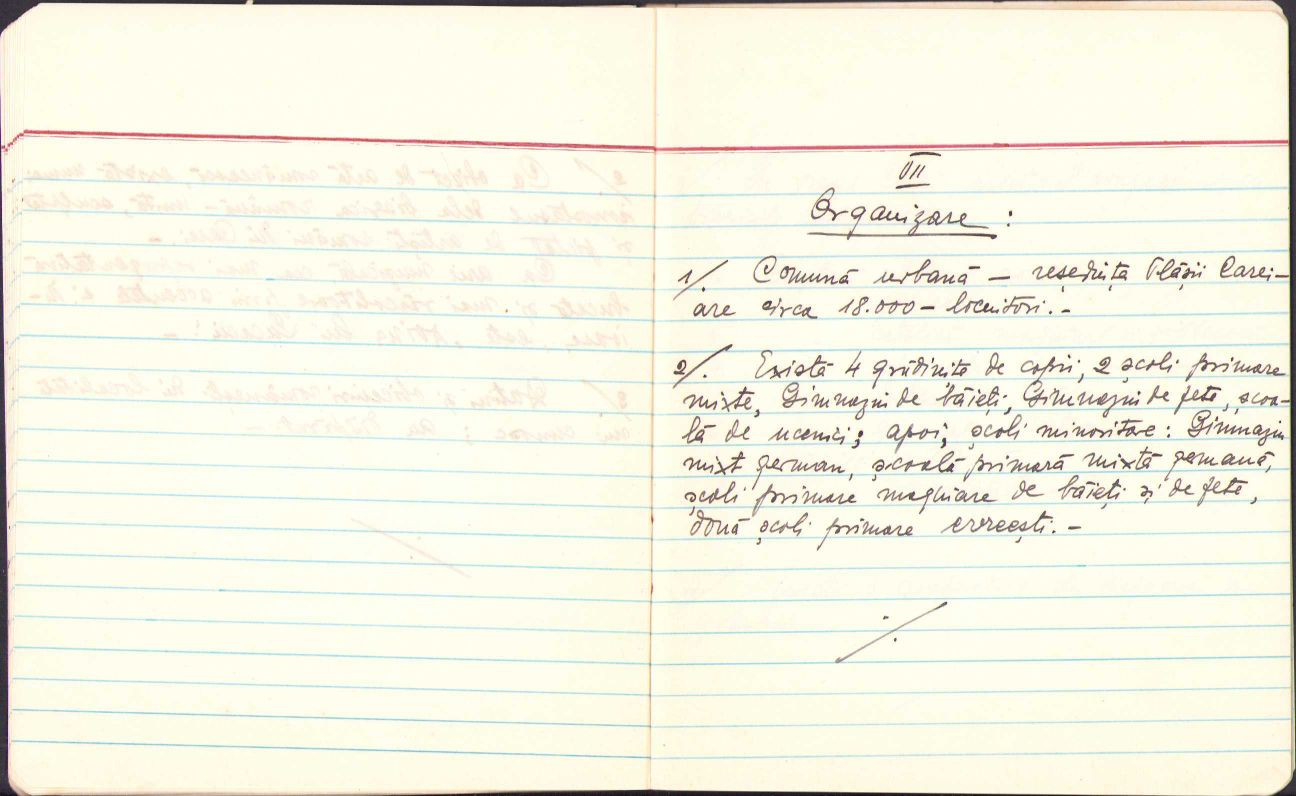 VII
Organizare :
1/. Comună urbană – reședința Plășii Carei –
are circa 18.000 – locuitori. –
2/. Există 4 grădinițe de copii, 2 școli primare
mixte, Gimnaziu de băieți, Gimnaziu de fete, școa-
lă de ucenici; apoi, școli minoritare: Gimnaziu
mixt german, școală primară mixtă germană,
școli primare maghiare de băieți și de fete,
două școli primare evreești. –
./.